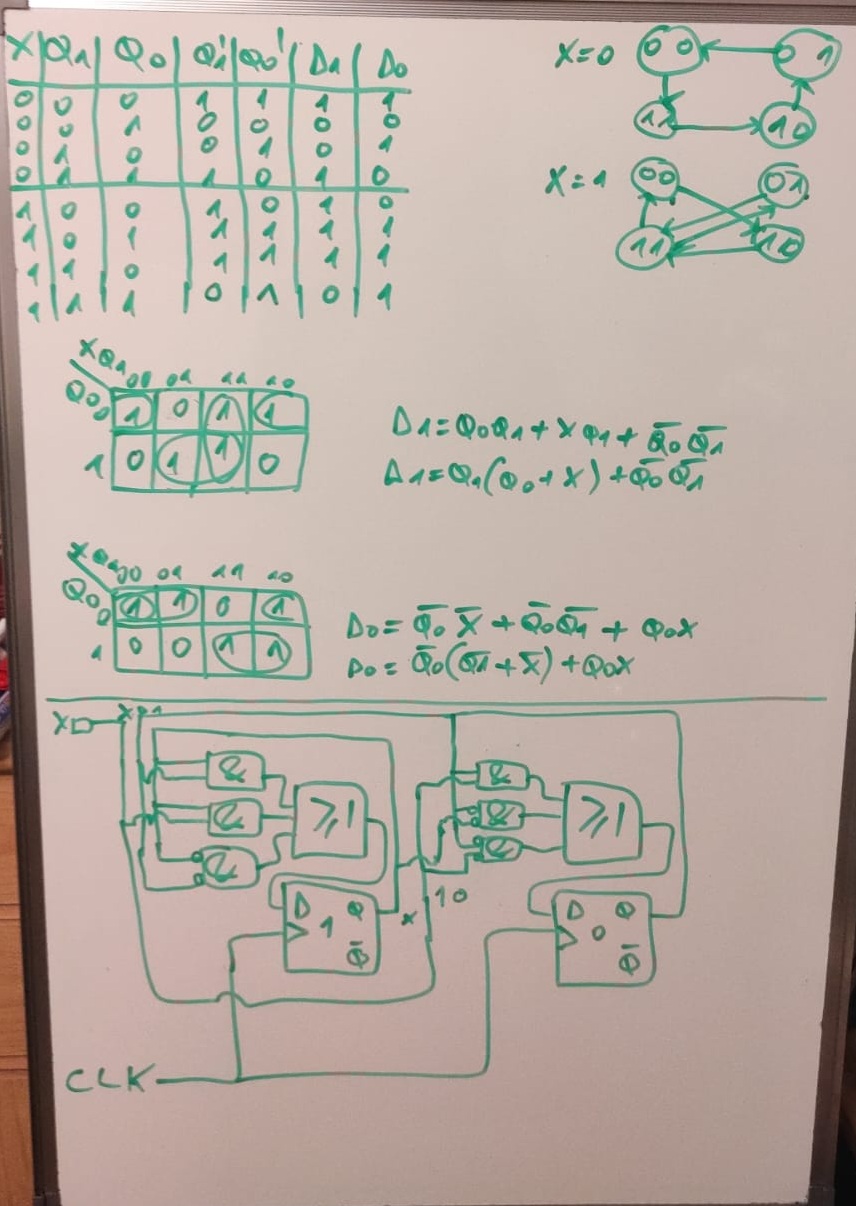 X Q1 Q0 Q1' Q0' D1 D0
0 0 0 1 1 1 1
0 0 1 0 0 0 0
0 1 0 0 1 0 1
0 1 1 1 0 1 0
1 0 0 1 0 1 0
1 0 1 1 1 1 1
1 1 0 1 1 1 1
1 1 1 0 1 0 1
X=0
00 01
11 10
X=1
00 01
11 10
XQ1 00 01 11 10
Q0
0 1 0 1 1
1 0 1 1 0
D1=Q0Q1+XQ1+Q̅0Q̅1
D1=Q1(Q0+X)+Q̅0Q̅1
XQ1 00 01 11 10
Q0
0 1 1 0 1
1 0 0 1 1
D0=Q̅0X̅+Q̅0Q̅1+Q0X
D0=Q̅0(Q̅1+X̅)+Q0X
X
&
&
&
≥1
&
&
&
≥1
D Q
1
Q̅
X
10
D Q
0
Q̅
CLK